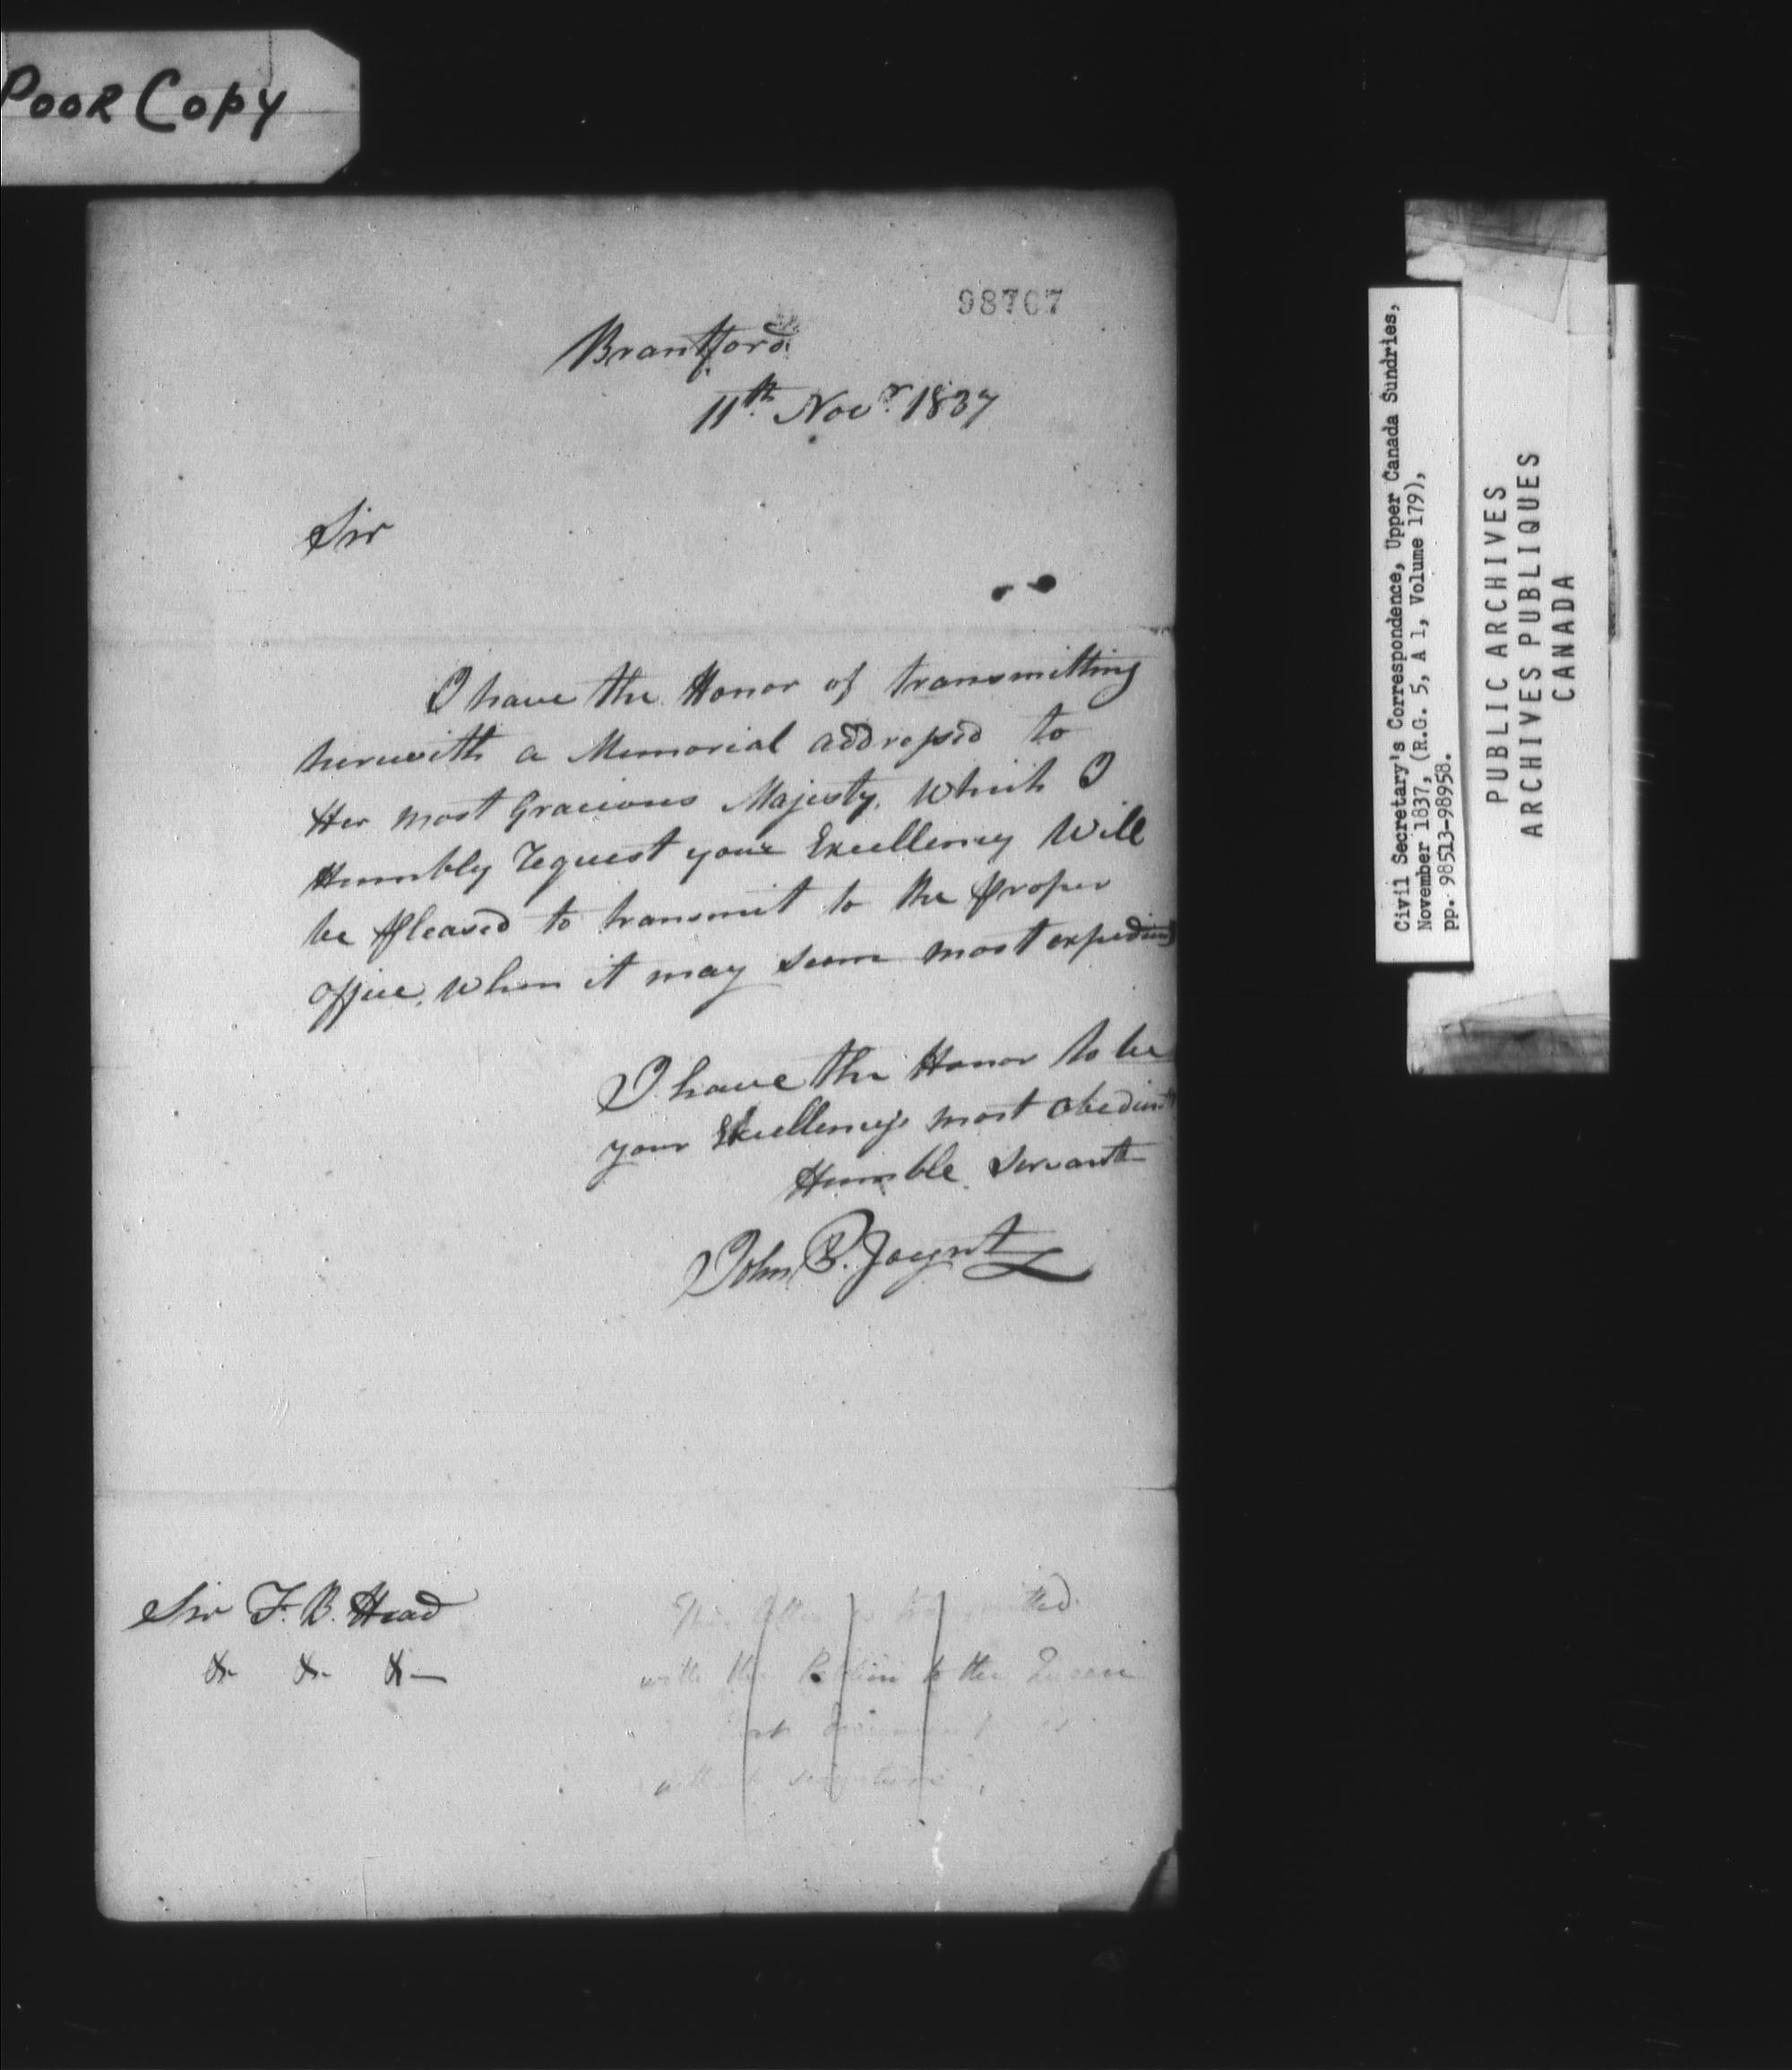 Poor Copy
98707
Brantford
11th Novr 1837
Sir
I have the Honor of transmitting
herewith a Memorial addressed to
Her most Gracious Majesty, Which I
Humbly request your Excellency Will
be pleased to transmit to the proper
office, when it may seem most expedient
I have the Honor to be
your Excellency's most obedient
Humble Servant
John B. Joynt
Sir F. B. Head
&- &- &-
with the Petition to the Queen
Civil Secretary's Correspondence, Upper Canada Sundries,
November 1837, (R.G. 5, A 1, Volume 179),
pp. 98513-98958.
PUBLIC ARCHIVES
ARCHIVES PUBLIQUES
CANADA